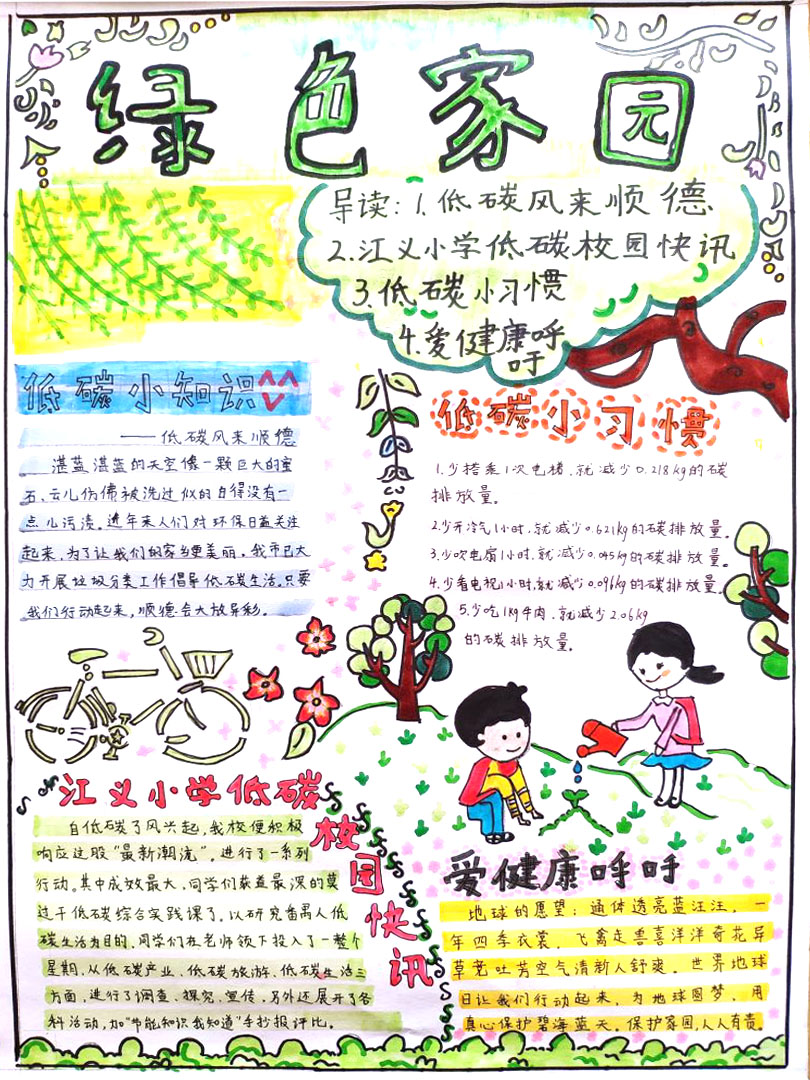 绿色家园
导读:1.低碳风来顺德
2.江义小学低碳校园快讯
3.低碳小习惯
4.爱健康呼
吁
低碳小知识
——低碳风来顺德
湛蓝湛蓝的天空像一颗巨大的宝
石、云儿仿佛被洗过似的白得没有一
点儿污渍。近年来人们对环保日益关注
起来,为了让我们的家乡更美丽,我市已大
力开展垃圾分类工作倡导低碳生活。只要
我们行动起来,顺德会大放异彩。
低碳小习惯
1.少搭乘1次电梯,就减少0.218kg的碳
排放量。
2.少开冷气1小时,就减少0.621kg的碳排放量。
3.少吹电扇1小时,就减少0.045kg的碳排放量。
4.少看电视1小时,就减少0.096kg的碳排放量。
5.少吃1kg牛肉,就减少2.06kg
的碳排放量。
江义小学低碳
校园快讯
自低碳了风兴起,我校便积极
响应这股“最新潮流”,进行了一系列
行动。其中成效最大,同学们获益最深的莫
过于低碳综合实践课了。以研究番禺人低
碳生活为目的,同学们在老师领下投入了一整个
星期,从低碳产业、低碳旅游、低碳生活三
方面,进行了调查、探究、宣传,另外还展开了各
科活动,如“节能知识我知道”手抄报评比。
爱健康呼吁
地球的愿望:通体透亮蓝汪汪,一
年四季衣裳,飞禽走兽喜洋洋奇花异
草老吐芳空气清新人舒爽。世界地球
日让我们行动起来,为地球圆梦,用
真心保护碧海蓝天。保护家园,人人有责。